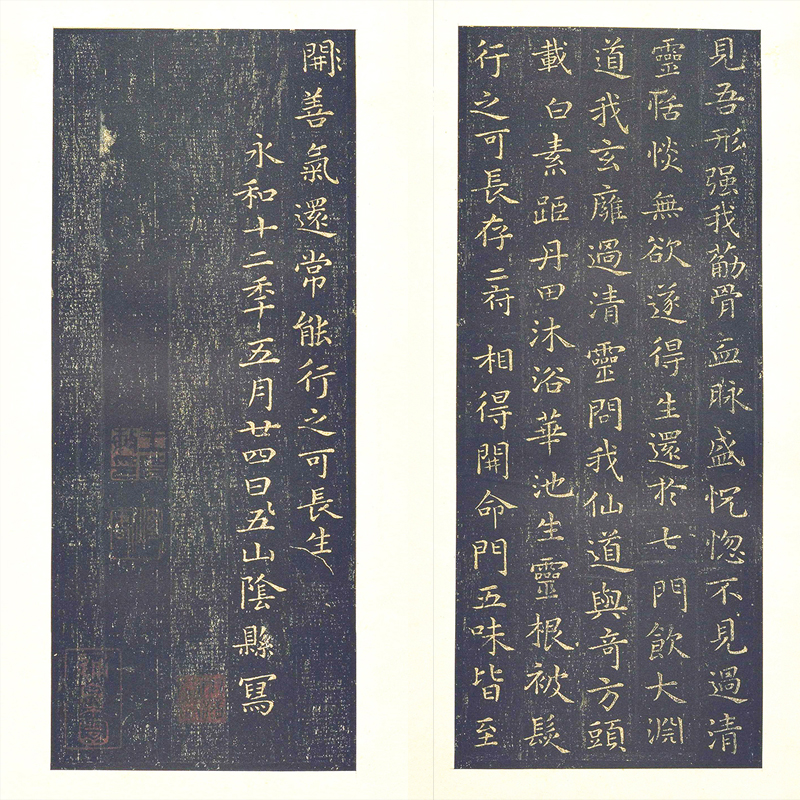 見吾形强我葪骨血脉盛怳惚不見過清
靈恬惔無欲遂得生還於七門飲大淵
道我玄廱過清靈問我仙道與奇方頭
載白素距丹田沐浴華池生靈根被髮
行之可長存二府相得開命門五味皆至
開善氣還常能行之可長生
永和十二秊五月廿四日五山陰縣寫